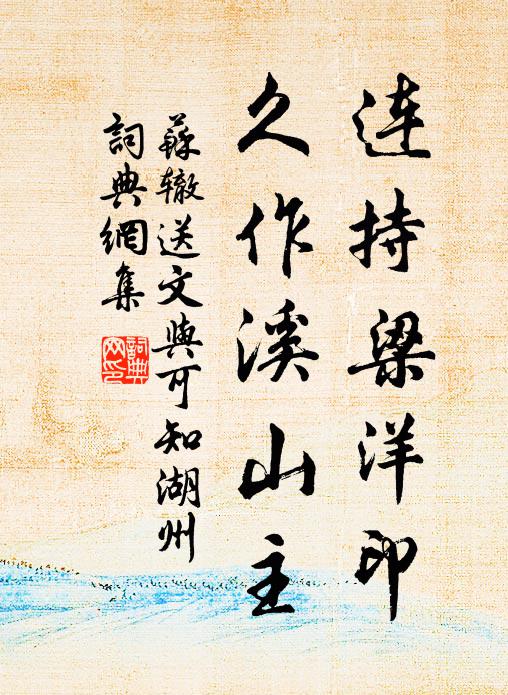 連持梁洋印
久作溪山主
蘇辙送文與可知湖州
詞典網集
詞典網印